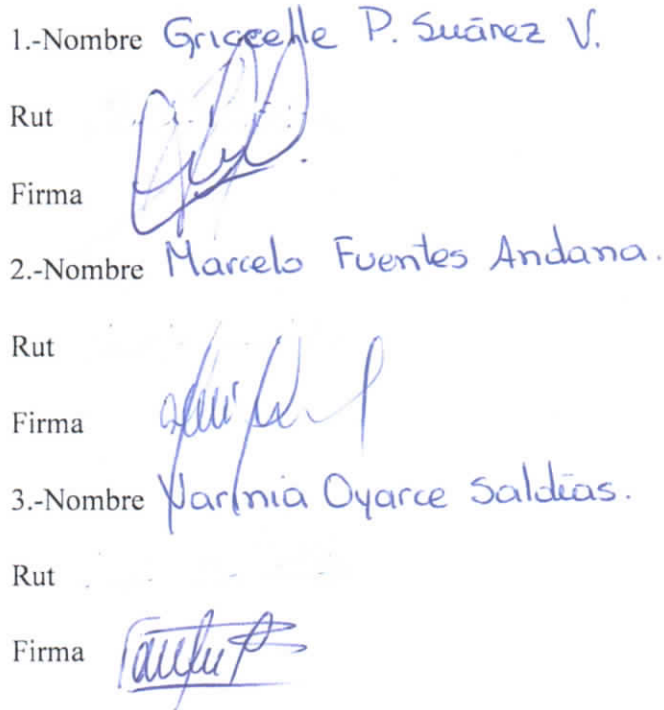 1.-Nombre Griccelle P. Suárez V.
Rut
Firma
2.-Nombre Marcelo Fuentes Andana.
Rut
Firma
3.-Nombre Varinia Oyarce Saldías.
Rut
Firma